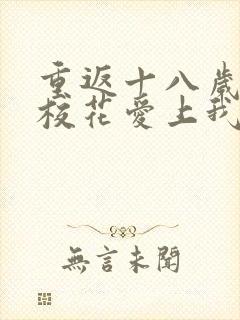 重返十八歲
校花愛上我
無言未聞